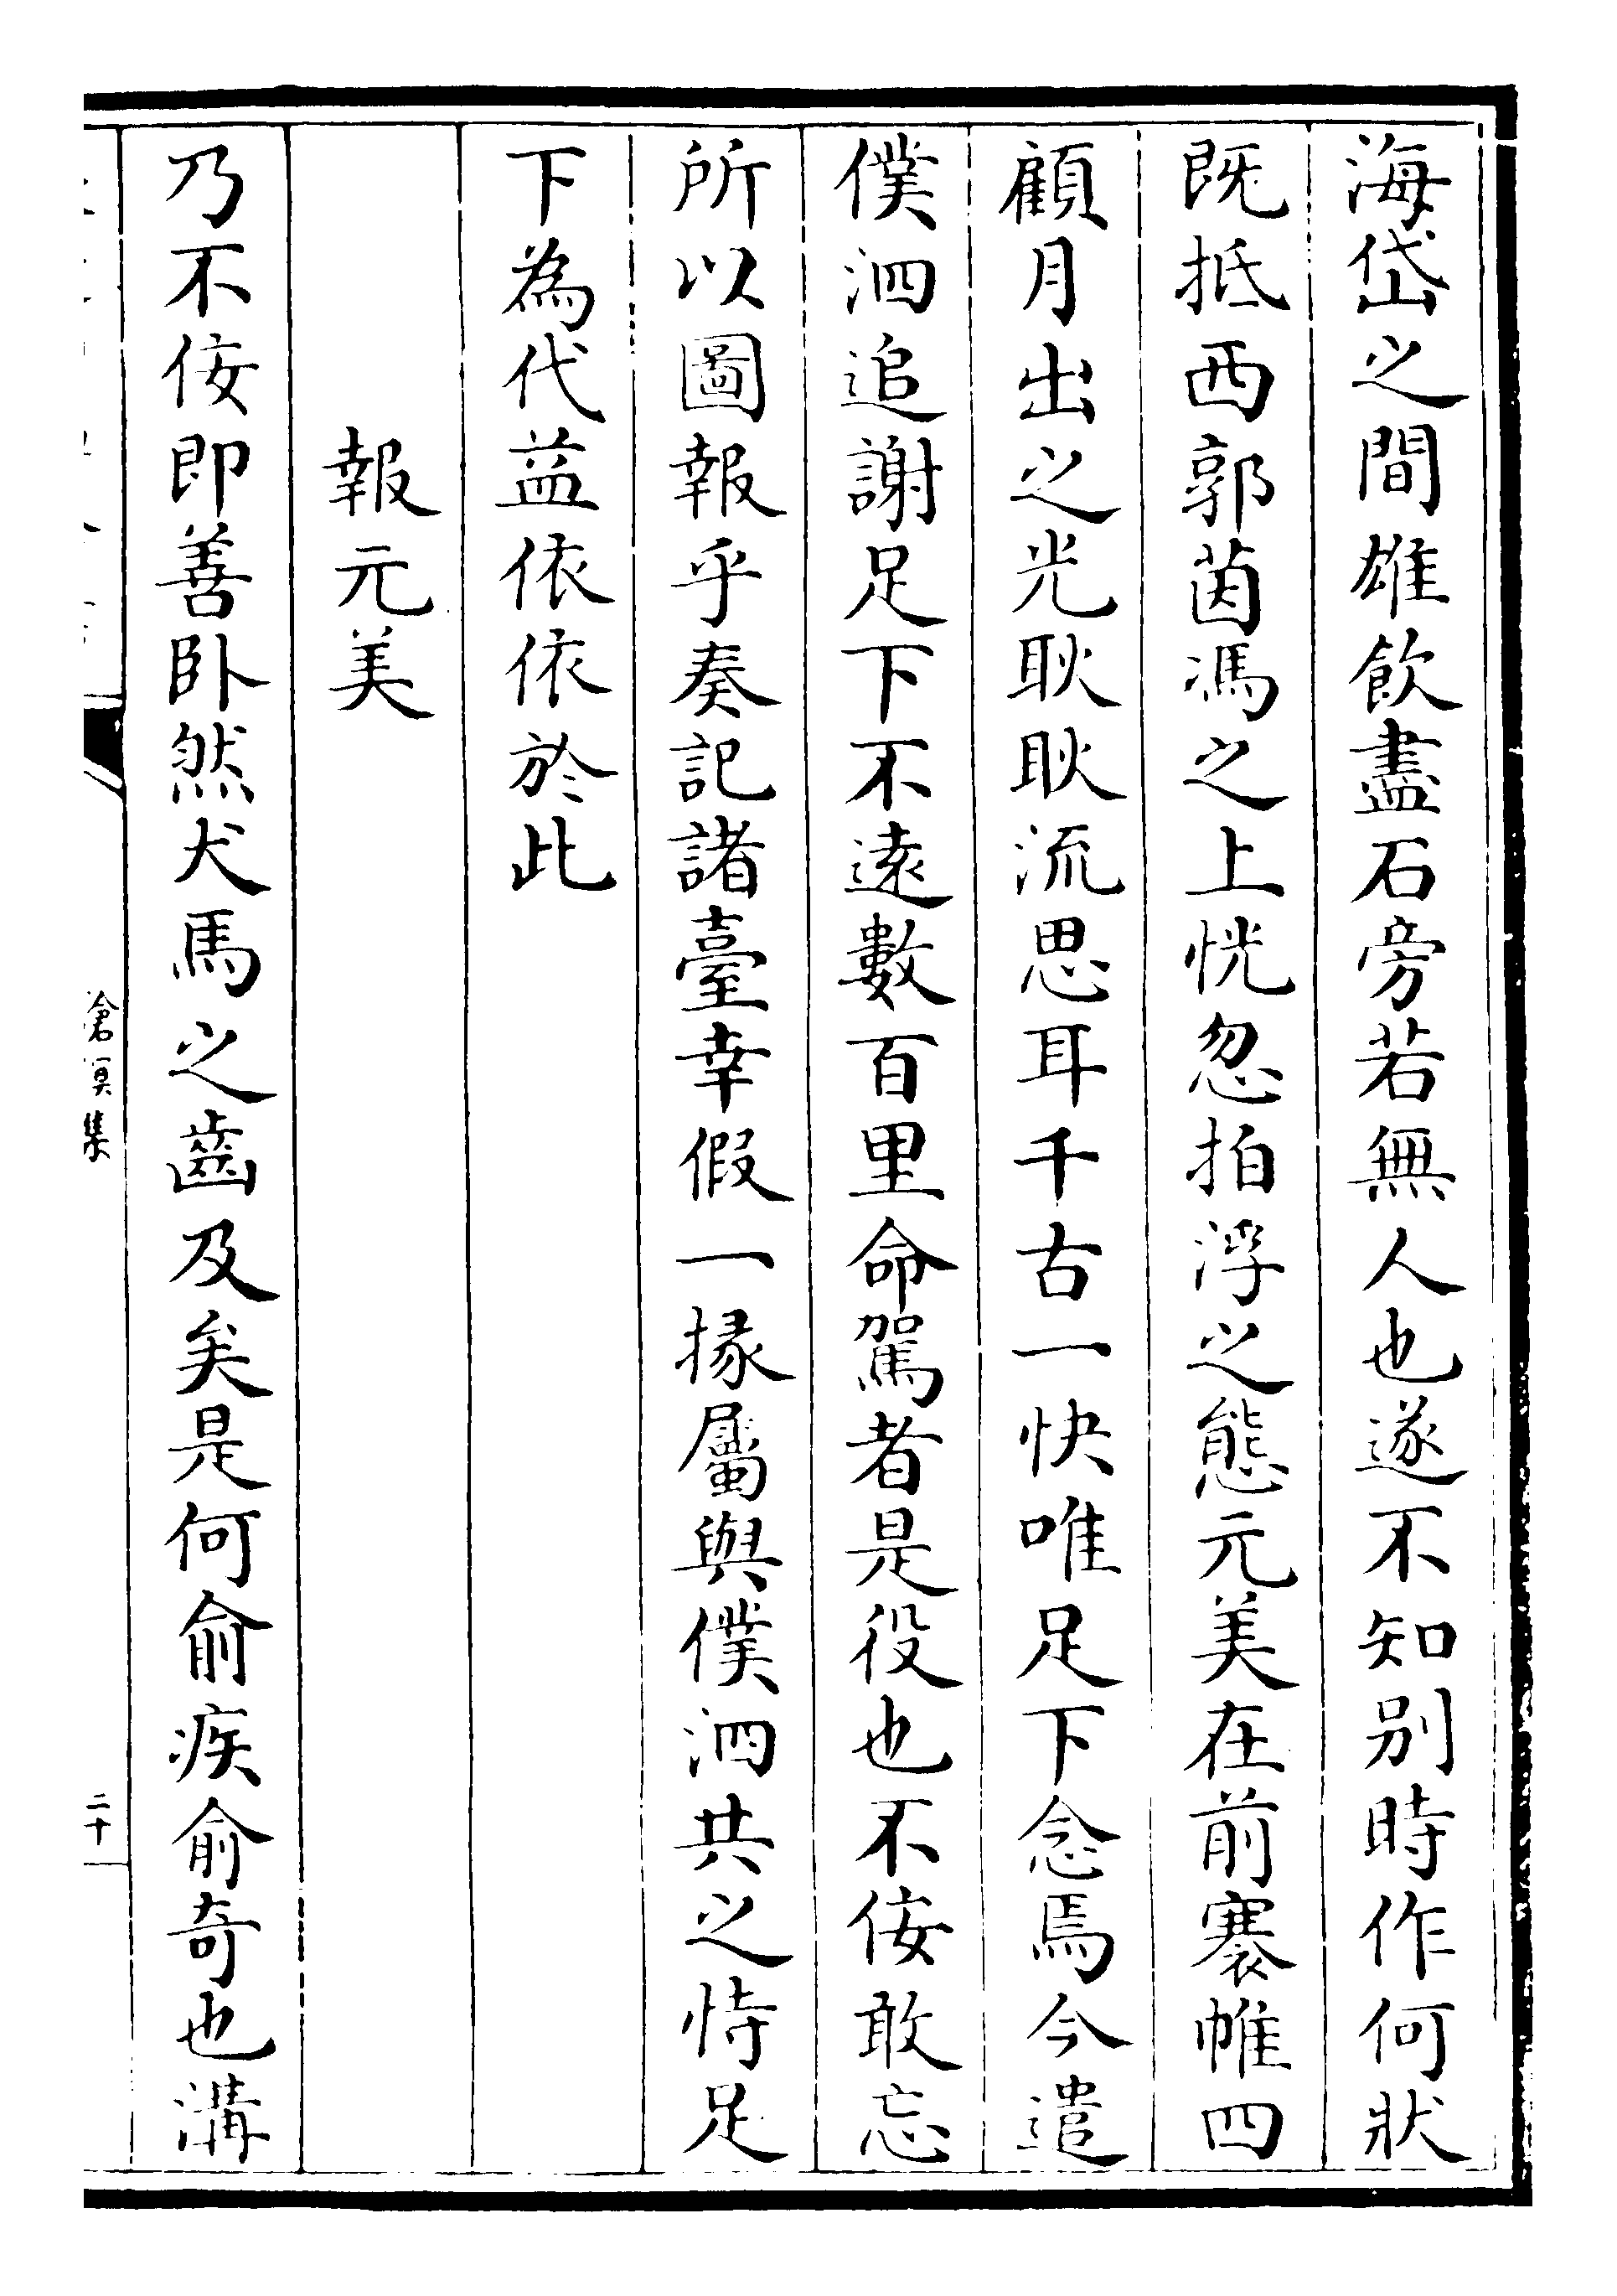 海岱之間雄飲盡石旁若無人也遂不知别時作何狀
既抵西郭茵馮之上恍忽拍浮之態元美在前褰帷四
顧月出之光耿耿流思耳千古一快唯足下念焉今遣
僕泗追謝足下不逺數百里命駕者是役也不佞敢忘
所以圖報乎奏記諸臺幸假一掾屬與僕泗共之恃足
下為代益依依於此
報元美
乃不佞即善卧然犬馬之齒及矣是何俞疾俞奇也溝
滄溟集
二十